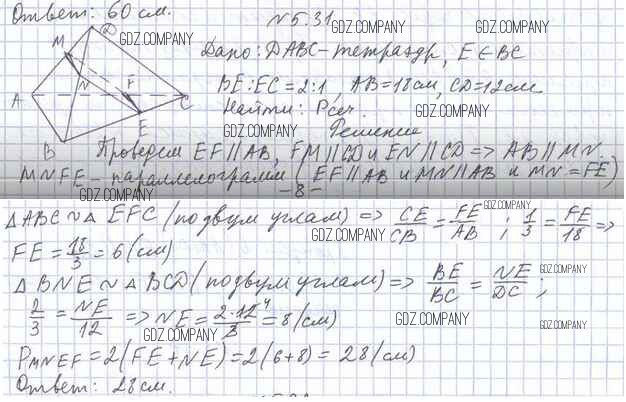 Ответ: 60 см.
N 5.31
GDZ.COMPANY
GDZ.COMPANY
GDZ.COMPANY
M D
Дано: DABC - тетраэдр, E ∈ BC
BE : EC = 2:1, AB = 18см, CD = 12см.
GDZ.COMPANY
N F
A C
Найти: Pсеч.
GDZ.COMPANY
E
Решение
B
Проведем EF || AB, FM || CD и EN || CD => AB || MN.
GDZ.COMPANY
MNFE - параллелограмм (EF || AB и MN || AB и MN = FE)
GDZ.COMPANY
-8-
GDZ.COMPANY
△ABC ~ △EFC (по двум углам) => CE/CB = FE/AB ; 1/3 = FE/18 =>
GDZ.COMPANY
FE = 18/3 = 6 (см)
△BNE ~ △BCD (по двум углам) => BE/BC = NE/DC ;
GDZ.COMPANY
2/3 = NE/12 => NE = 2·12 4/3 = 8 (см)
GDZ.COMPANY
GDZ.COMPANY
GDZ.COMPANY
PMNEF = 2(FE + NE) = 2(6+8) = 28 (см)
GDZ.COMPANY
Ответ: 28 см.